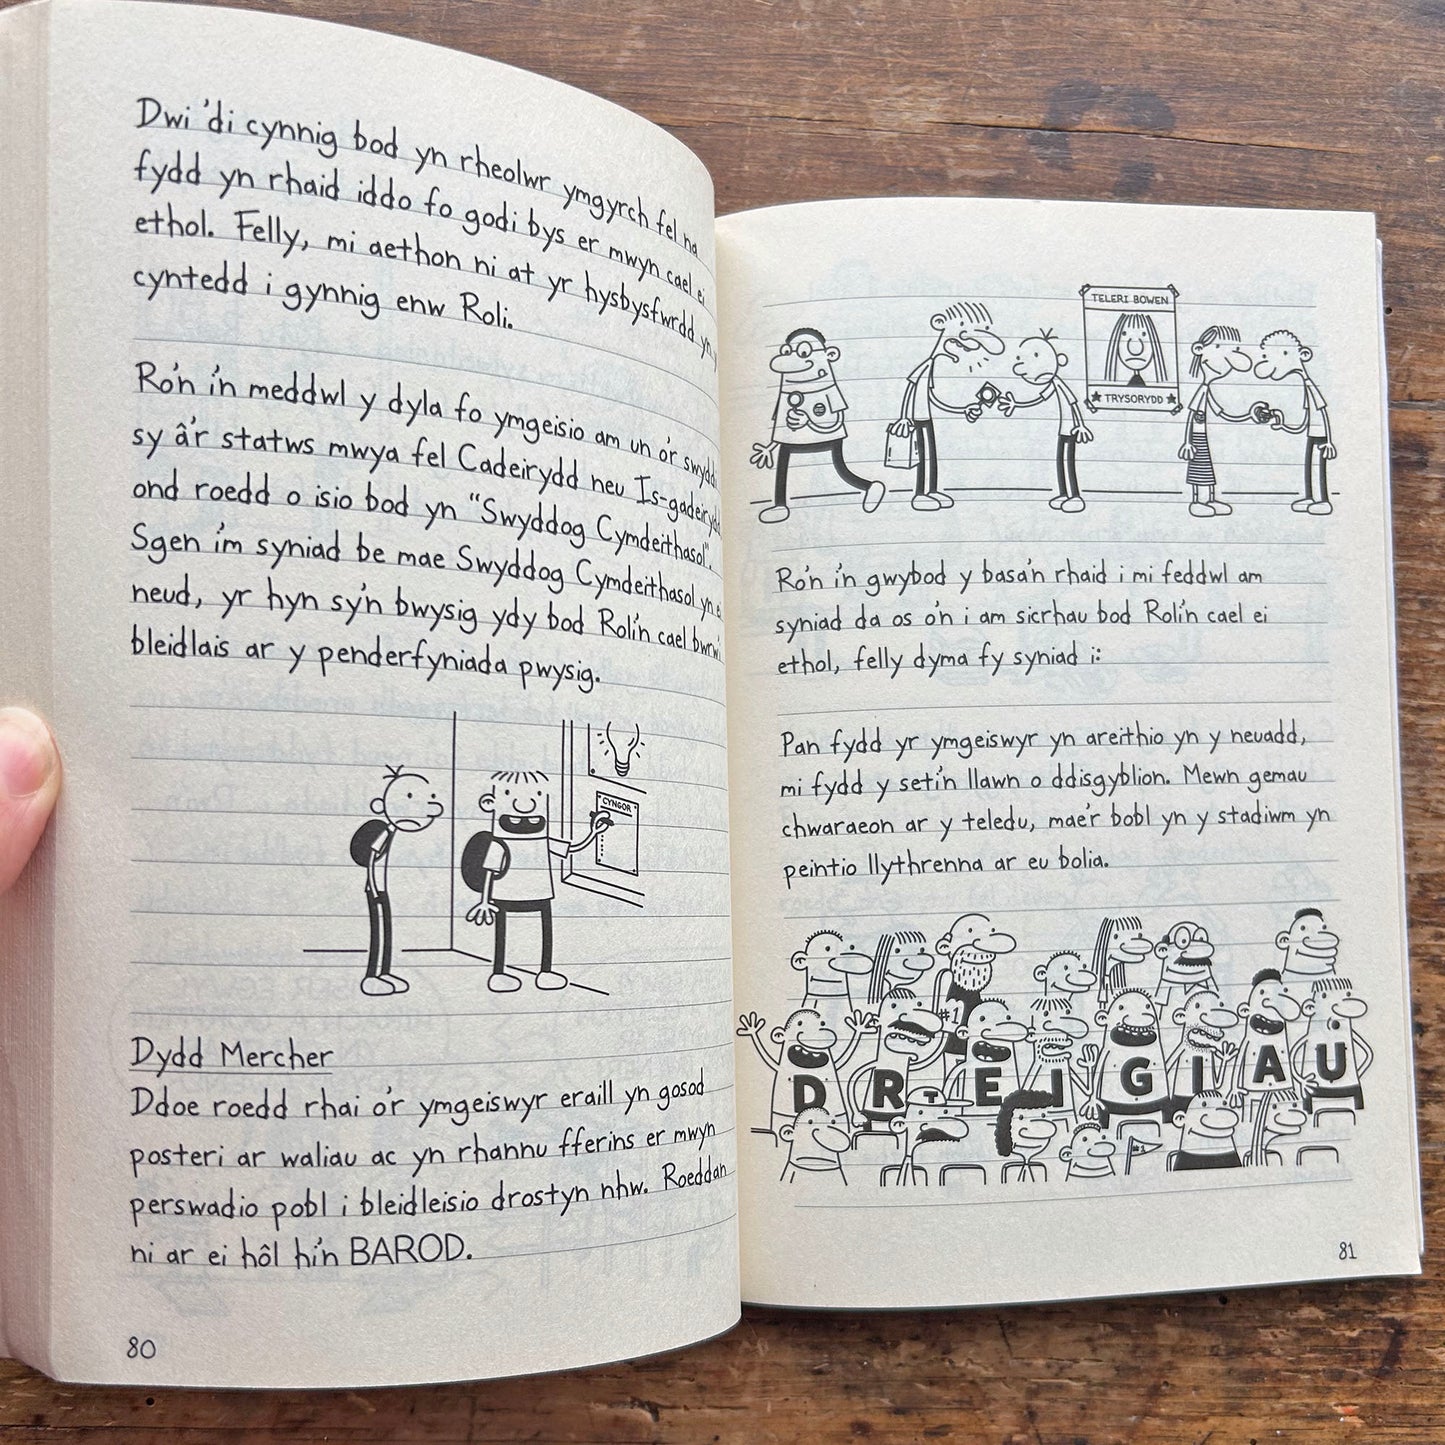 Dwi 'di cynnig bod yn rheolwr ymgyrch fel na
fydd yn rhaid iddo fo godi bys er mwyn cael ei
ethol. Felly, mi aethon ni at yr hysbysfwrdd yn y
cyntedd i gynnig enw Roli.
Ro'n i'n meddwl y dyla fo ymgeisio am un o'r swyddi
sy â'r statws mwya fel Cadeirydd neu Is-gadeirydd
ond roedd o isio bod yn "Swyddog Cymdeithasol".
Sgen i'm syniad be mae Swyddog Cymdeithasol yn ei
neud, yr hyn sy'n bwysig ydy bod Roli'n cael bwrw'i
bleidlais ar y penderfyniada pwysig.
CYNGOR
Dydd Mercher
Ddoe roedd rhai o'r ymgeiswyr eraill yn gosod
posteri ar waliau ac yn rhannu fferins er mwyn
perswadio pobl i bleidleisio drostyn nhw. Roeddan
ni ar ei hôl hi'n BAROD.
80
TELERI BOWEN
TRYSORYDD
Ro'n i'n gwybod y basa'n rhaid i mi feddwl am
syniad da os o'n i am sicrhau bod Roli'n cael ei
ethol, felly dyma fy syniad i:
Pan fydd yr ymgeiswyr yn areithio yn y neuadd,
mi fydd y seti'n llawn o ddisgyblion. Mewn gemau
chwaraeon ar y teledu, mae'r bobl yn y stadiwm yn
peintio llythrenna ar eu bolia.
#1
D R E I G I A U
T
#1
81